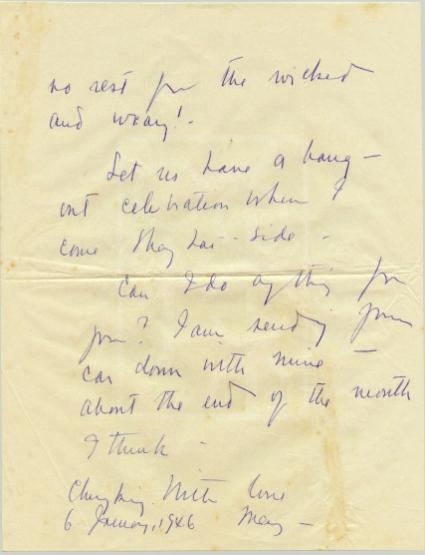 no rest for the wicked
and weary!
Let us have a bang-
out celebration when I
come Shanghai-side -
Can I do anything for
you? I am sending your
car down with mine -
about the end of the month
I think -
Chungking With love
6 January, 1946 Mary -